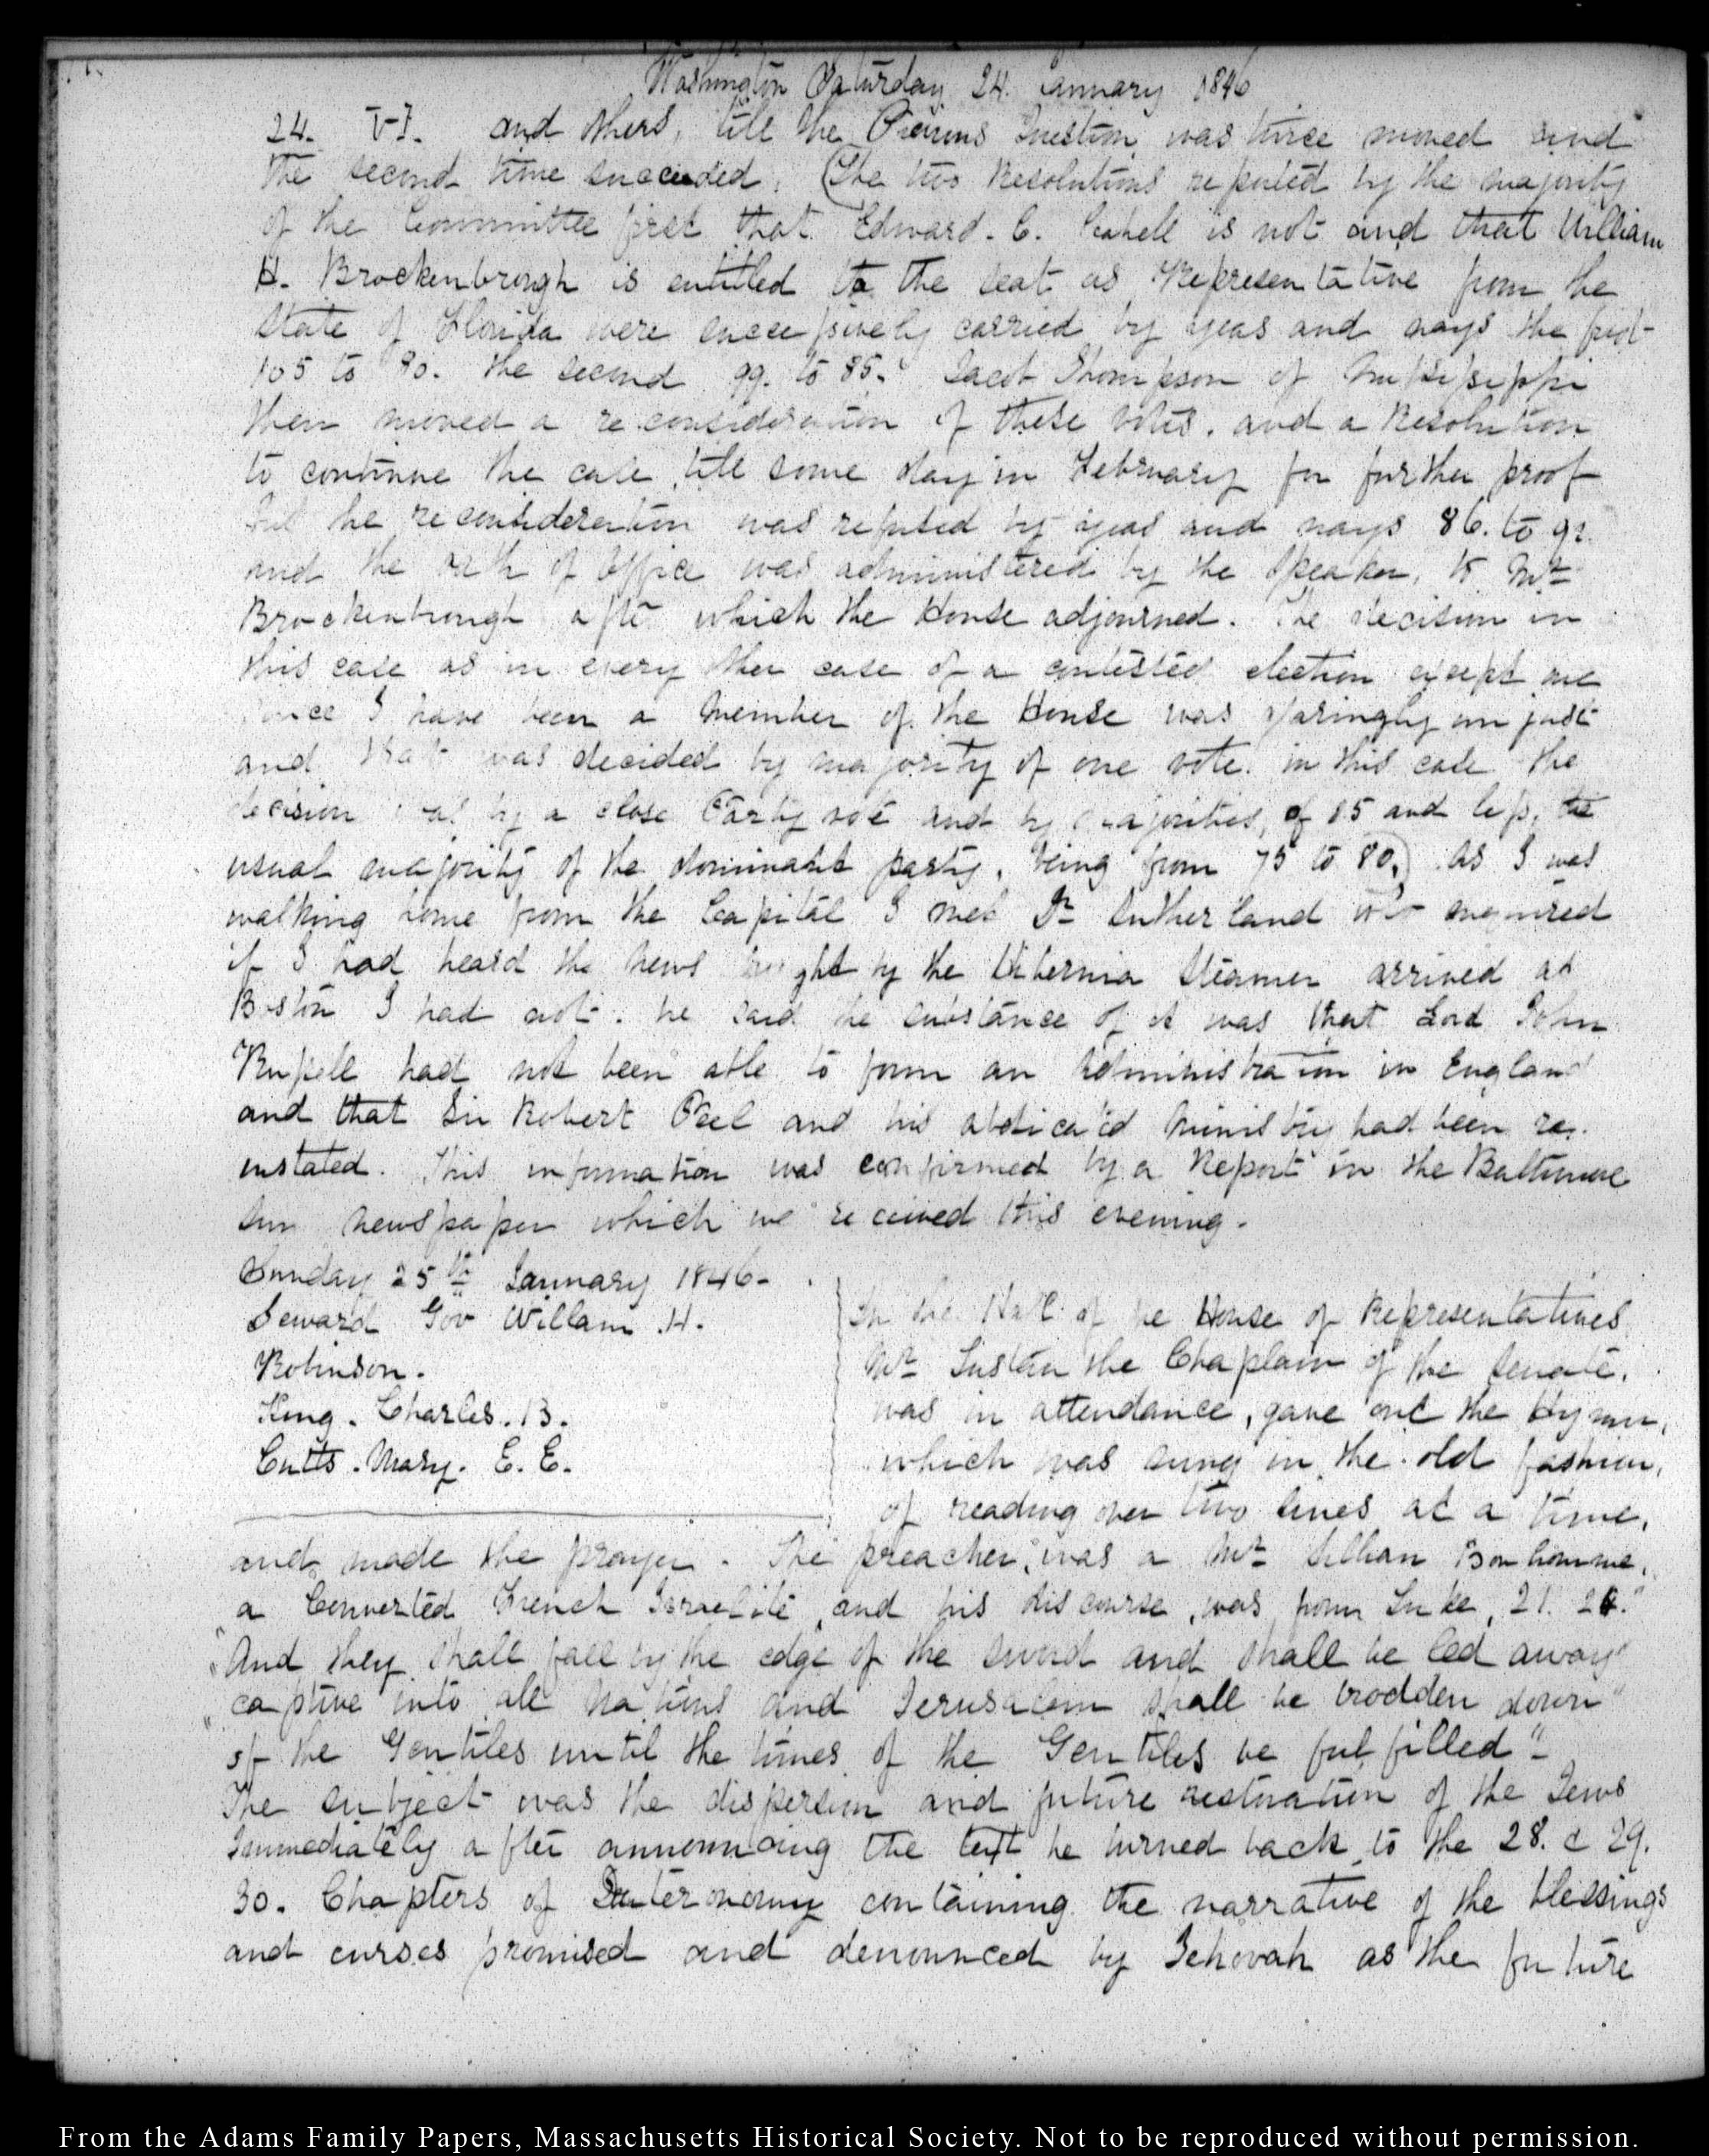 Washington Saturday 24. January 1846
24. VI. and others, till the Previous Question was twice moved and
the second time succeeded. (The two Resolutions reported by the majority
of the Committee first that Edward. C. Cabell is not and that William
H. Brockenbrough is entitled to the seat as Representative from the
State of Florida were successively carried by yeas and nays the first
105 to 80. the second 99. to 85. Jacob Thompson of Mississippi
then moved a reconsideration of these votes. and a Resolution
to continue the case till some day in February for further proof
but the reconsideration was refused by yeas and nays 86. to
and the oath of Office was administered by the Speaker, to Mr
Brockenbrough after which the House adjourned. The decision in
this case as in every other case of a contested election except one
since I have been a Member of the House was unjust
and that was decided by majority of one vote. in this case the
decision was by a close Party vote and by majorities, of 15 and less, the
usual majority of the dominant party, being from 75 to 80.) As I was
walking home from the Capital I met Dr Sutherland who enquired
if I had heard the news brought by the Hibernia Steamer arrived at
Boston I had not. he said the substance of it was that Lord John
Russell had not been able to form an Administration in England
and that Sir Robert Peel and his abdicated Ministry had been re-
instated. This information was confirmed by a Report in the Baltimore
Sun newspaper which we received this evening.
Sunday 25th January 1846-
Seward Gov William .H.
Robinson.
King. Charles. B.
Cutts. Mary. E. E.
In the Hall of the House of Representatives
Mr Tustin the Chaplain of the Senate,
was in attendance, gave out the Hymn,
which was sung in the old fashion,
of reading over two lines at a time,
and made the prayer. The preacher, was a Mr Sillian Bonhomme,
a Converted French Israelite, and his discourse, was from Luke, 21. 24."
"And they shall fall by the edge of the sword and shall be led away"
"captive into all Nations and Jerusalem shall be trodden down"
of the Gentiles until the times of the Gentiles be fulfilled"-
The subject was the dispersion and future restoration of the Jews
Immediately after announcing the text he turned back to the 28. & 29.
30. Chapters of Deuteronomy containing the narrative of the blessings
and curses promised and denounced by Jehovah as the future
From the Adams Family Papers, Massachusetts Historical Society. Not to be reproduced without permission.